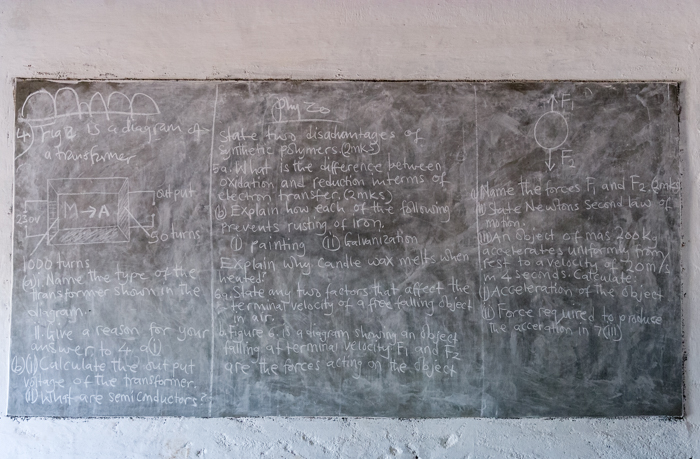 4) Fig 2 is a diagram of
a transformer
output
M→A
50 turns
1000 turns
(i) Name the type of the
transformer shown in the
diagram.
ii Give a reason for your
answer to 4 a(i)
(b)(i) Calculate the output
voltage of the transformer.
(ii) What are semiconductors?
Phy 20
State two disadvantages of
synthetic polymers. (2mks)
5a. What is the difference between
oxidation and reduction interms of
electron transfer. (2mks)
(b) Explain how each of the following
prevents rusting of Iron.
(i) Painting (ii) Galvanization
Explain why candle wax melts when
heated.
State any two factors that affect the
terminal velocity of a free falling object
in air.
b. Figure 6 is a diagram showing an object
falling at terminal velocity. F1 and F2
are the forces acting on the object
F1
F2
Name the forces F1 and F2. (2mks)
ii) State Newtons Second law of
motion.
iii) An object of mas 200kg
accelerates uniformly from
rest to a velocity of 20m/s
in 4 seconds. Calculate
Acceleration of the object
ii) Force required to produce
the acceration in 7(iii)